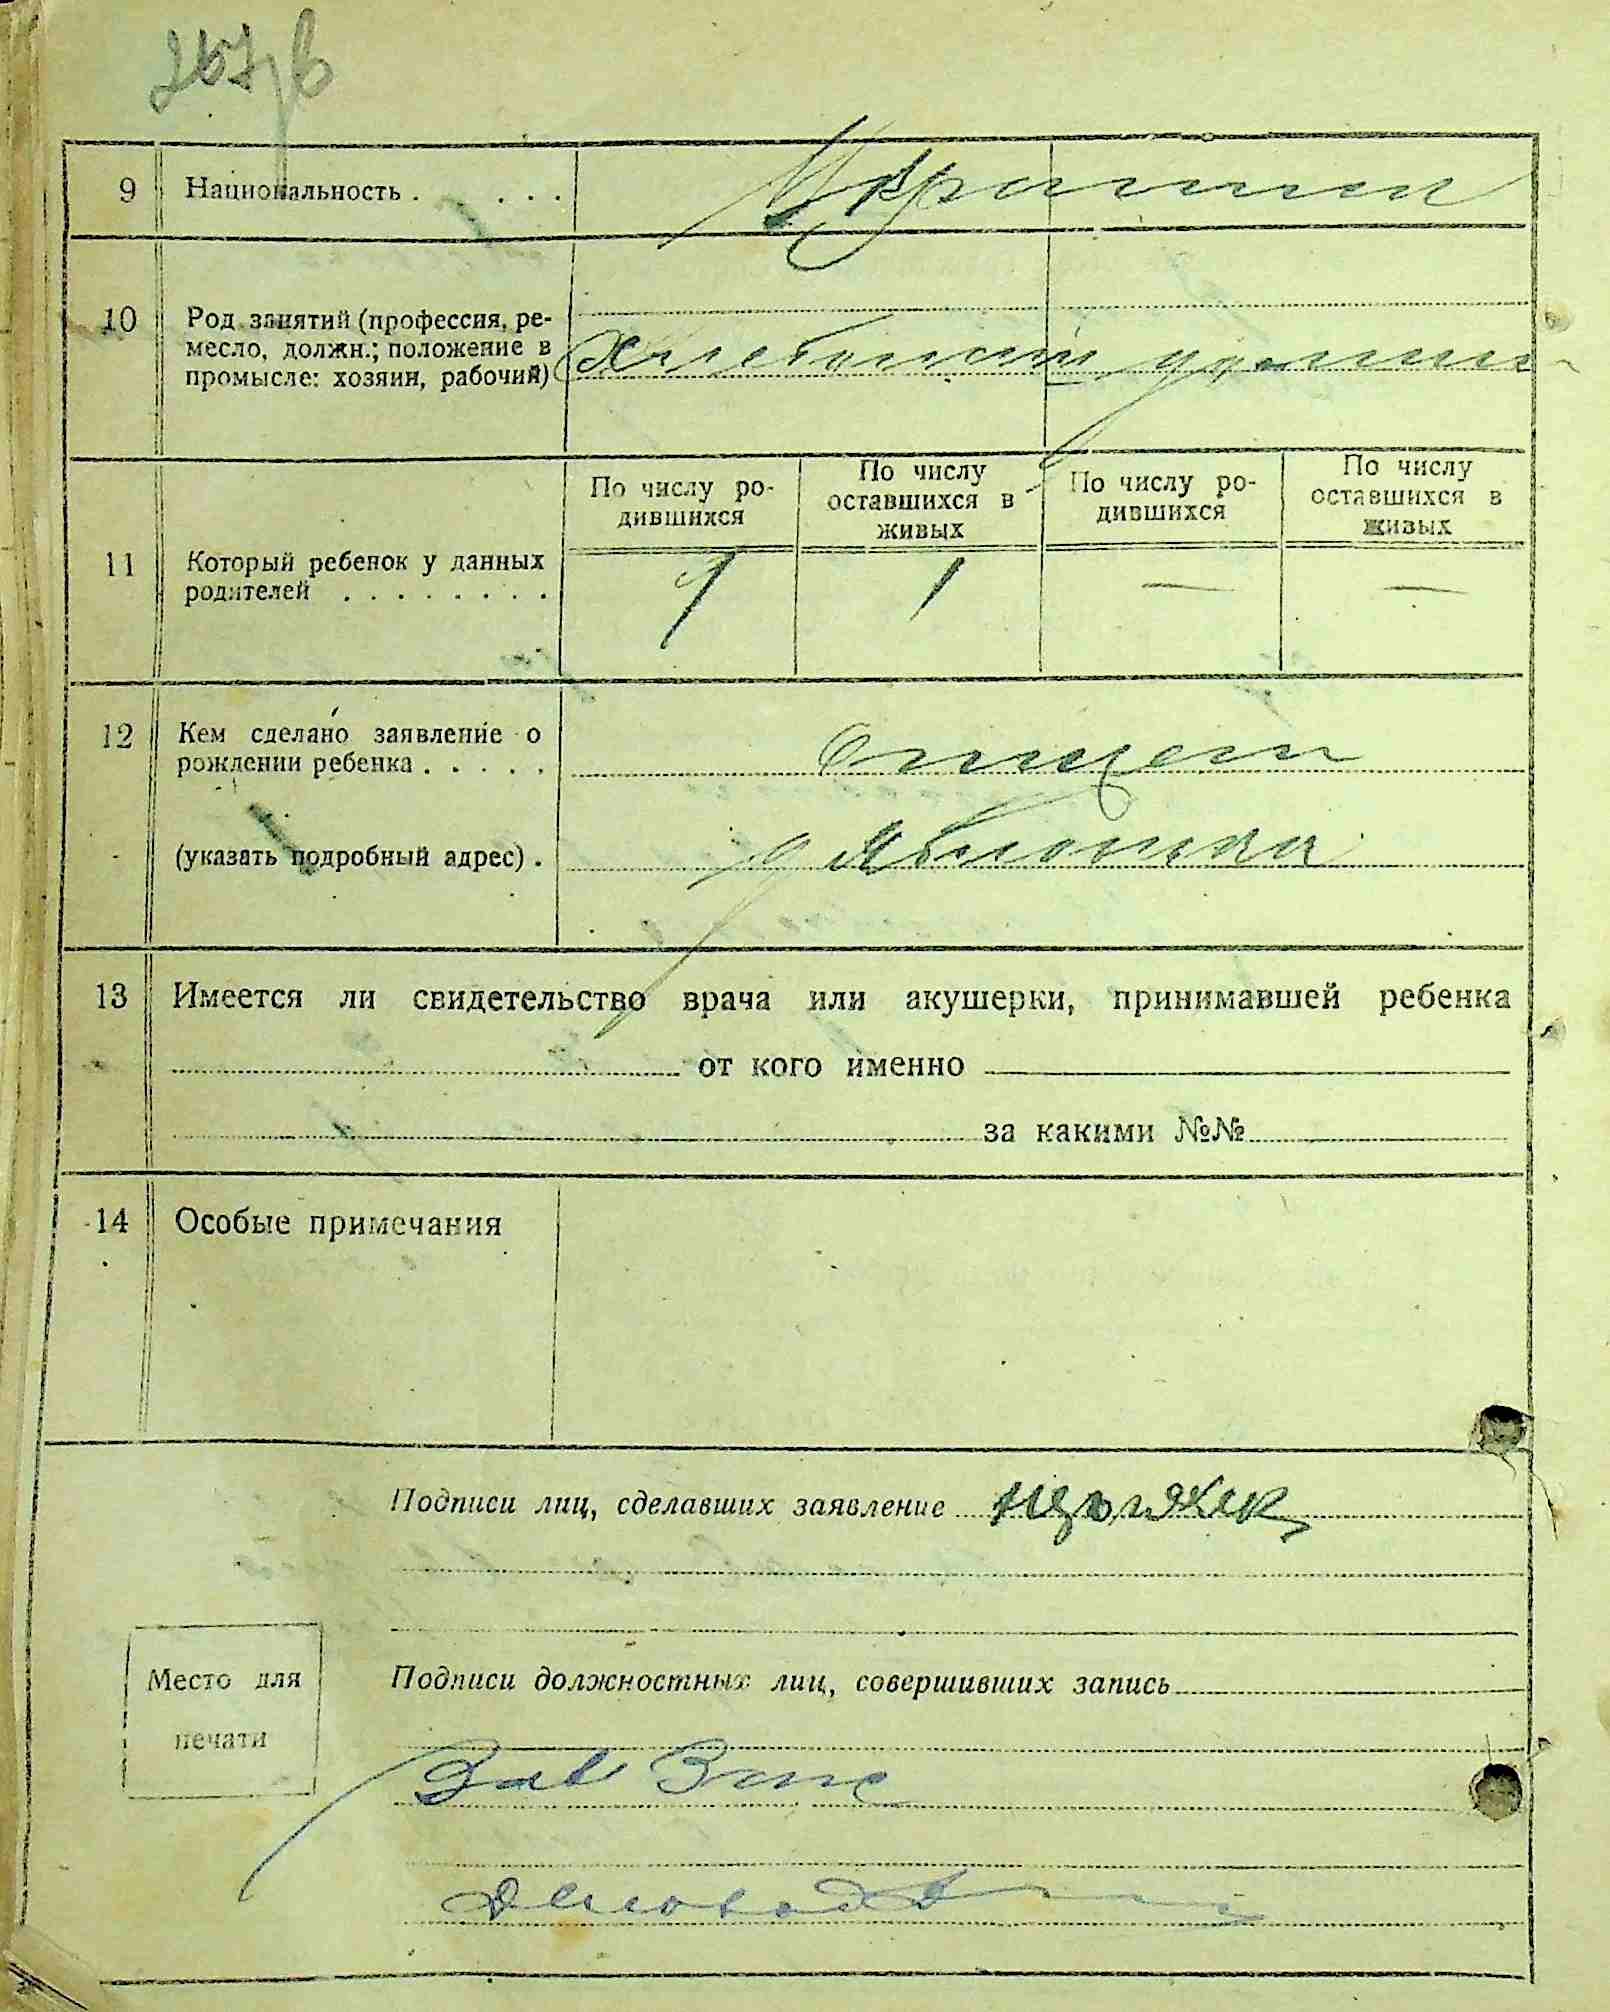 9 Национальность . . . . Украинец
10 Род занятий (профессия, ре-
месло, должн.; положение в
промысле: хозяин, рабочий)
Хлебопаш
По числу ро-
дившихся
По числу
оставшихся в
живых
По числу ро-
дившихся
По числу
оставшихся в
живых
11 Который ребенок у данных
родителей . . . . . . . .
1 1 — —
12 Кем сделано заявление о
рождении ребенка . . . . .
отцем
(указать подробный адрес) .
13 Имеется ли свидетельство врача или акушерки, принимавшей ребенка
от кого именно
за какими №№
14 Особые примечания
Подписи лиц, сделавших заявление
Место для
печати
Подписи должностных лиц, совершивших запись
Зав Загс
Деловод